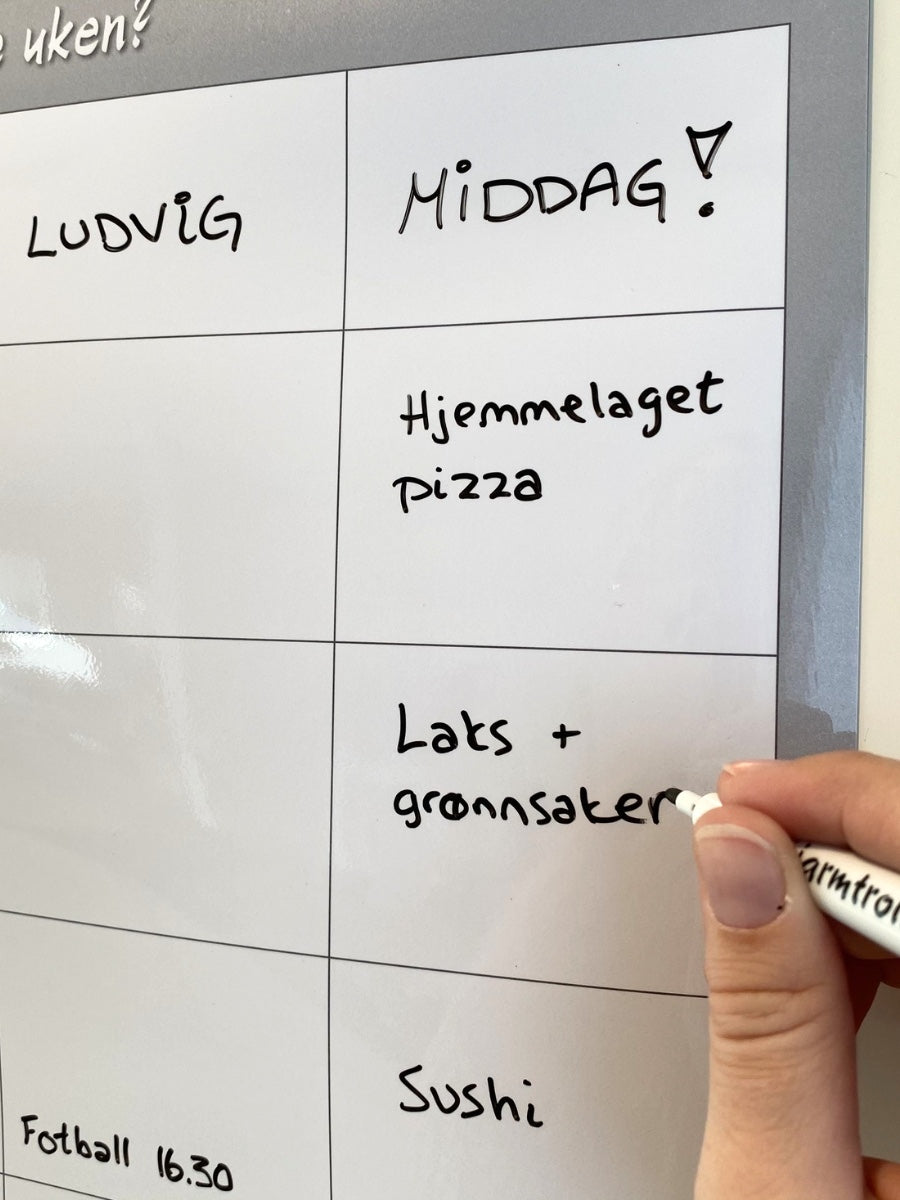 uken?
LUDVIG
MIDDAG!
Hjemmelaget
pizza
Laks +
grønnsaker
Fotball 16.30
Sushi